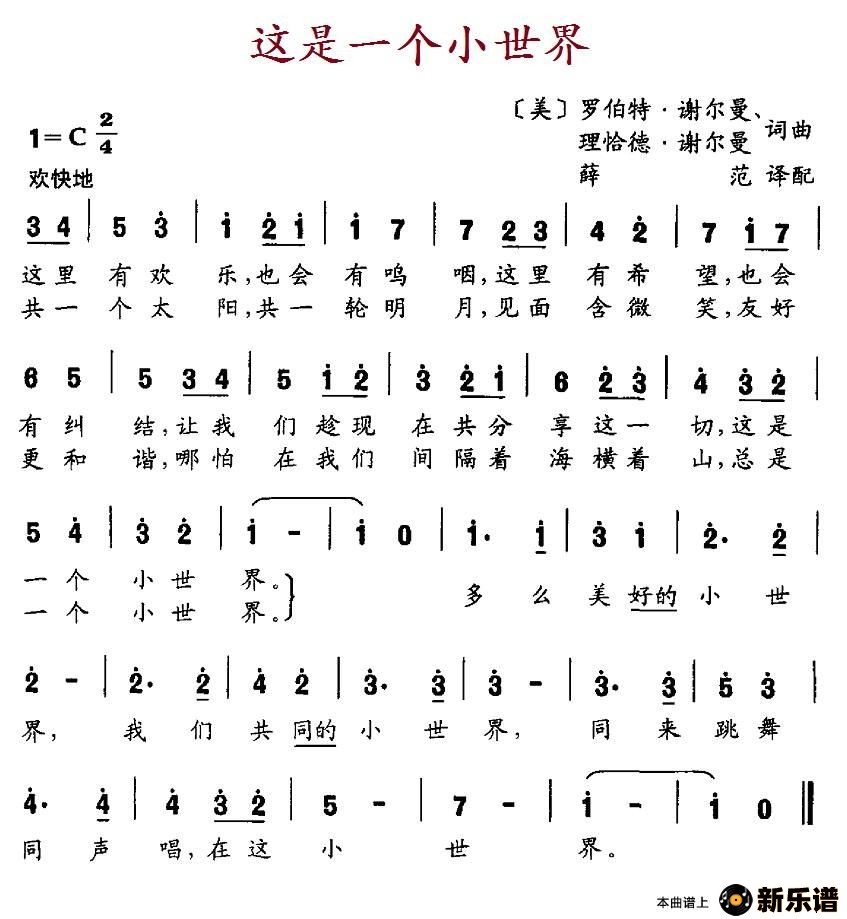 这是一个小世界
〔美〕罗伯特·谢尔曼、
1=C 2/4
理恰德·谢尔曼 词曲
欢快地
薛 范 译配
3 4 | 5 3̇ | 1̇ 2̇ 1̇ | 1̇ 7 | 7 2̇ 3̇ | 4 2̇ | 7 1̇ 7 |
这里 有欢 乐,也会 有呜 咽,这里 有希 望,也会
共一 个太 阳,共一 轮明 月,见面 含微 笑,友好
6 5 | 5 3 4 | 5 1̇ 2̇ | 3̇ 2̇ 1̇ | 6 2̇ 3̇ | 4̇ 3̇ 2̇ |
有纠 结,让我 们趁现 在共分 享这一 切,这是
更和 谐,哪怕 在我们 间隔着 海横着 山,总是
5 4̇ | 3̇ 2̇ | 1̇ - | 1̇ 0 | 1̇· 1̇ | 3̇ 1̇ | 2̇· 2̇ |
一个 小世 界。
一个 小世 界。
多么 美好的 小世
2̇ - | 2̇· 2̇ | 4̇ 2̇ | 3̇· 3̇ | 3̇ - | 3̇· 3̇ | 5̇ 3̇ |
界, 我们 共同的 小世 界, 同来 跳舞
4̇· 4̇ | 4̇ 3̇ 2̇ | 5 - | 7 - | 1̇ - | 1̇ 0 ‖
同声 唱,在这 小 世 界。
本曲谱上 新乐谱